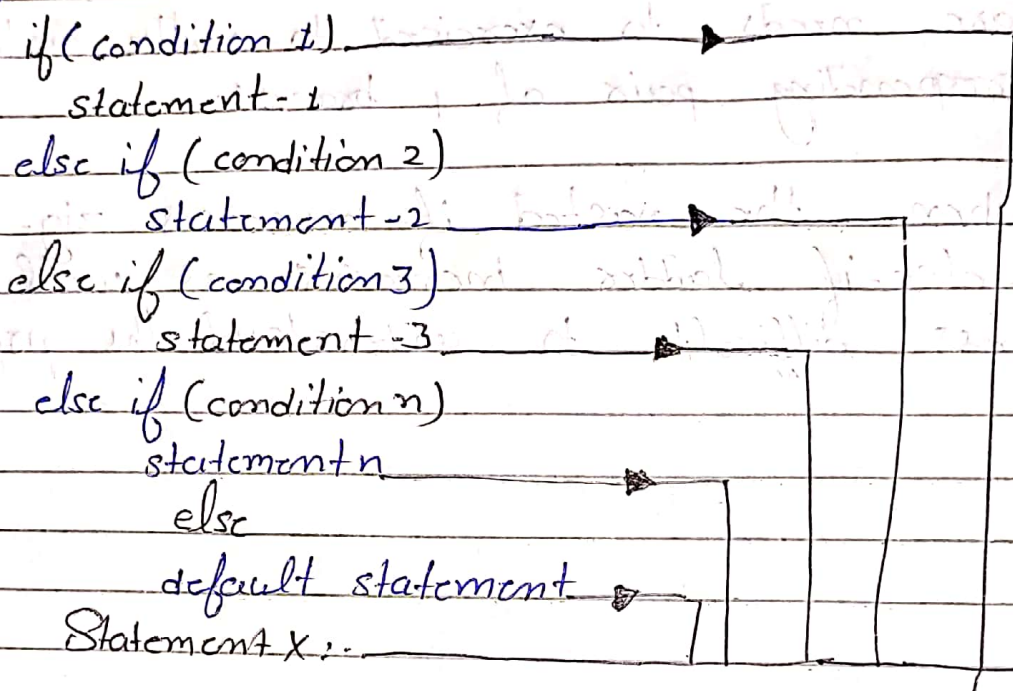 if (condition 1)
statement-1
else if (condition 2)
statement-2
else if (condition 3)
statement-3
else if (condition n)
statement n
else
default statement
Statement X;